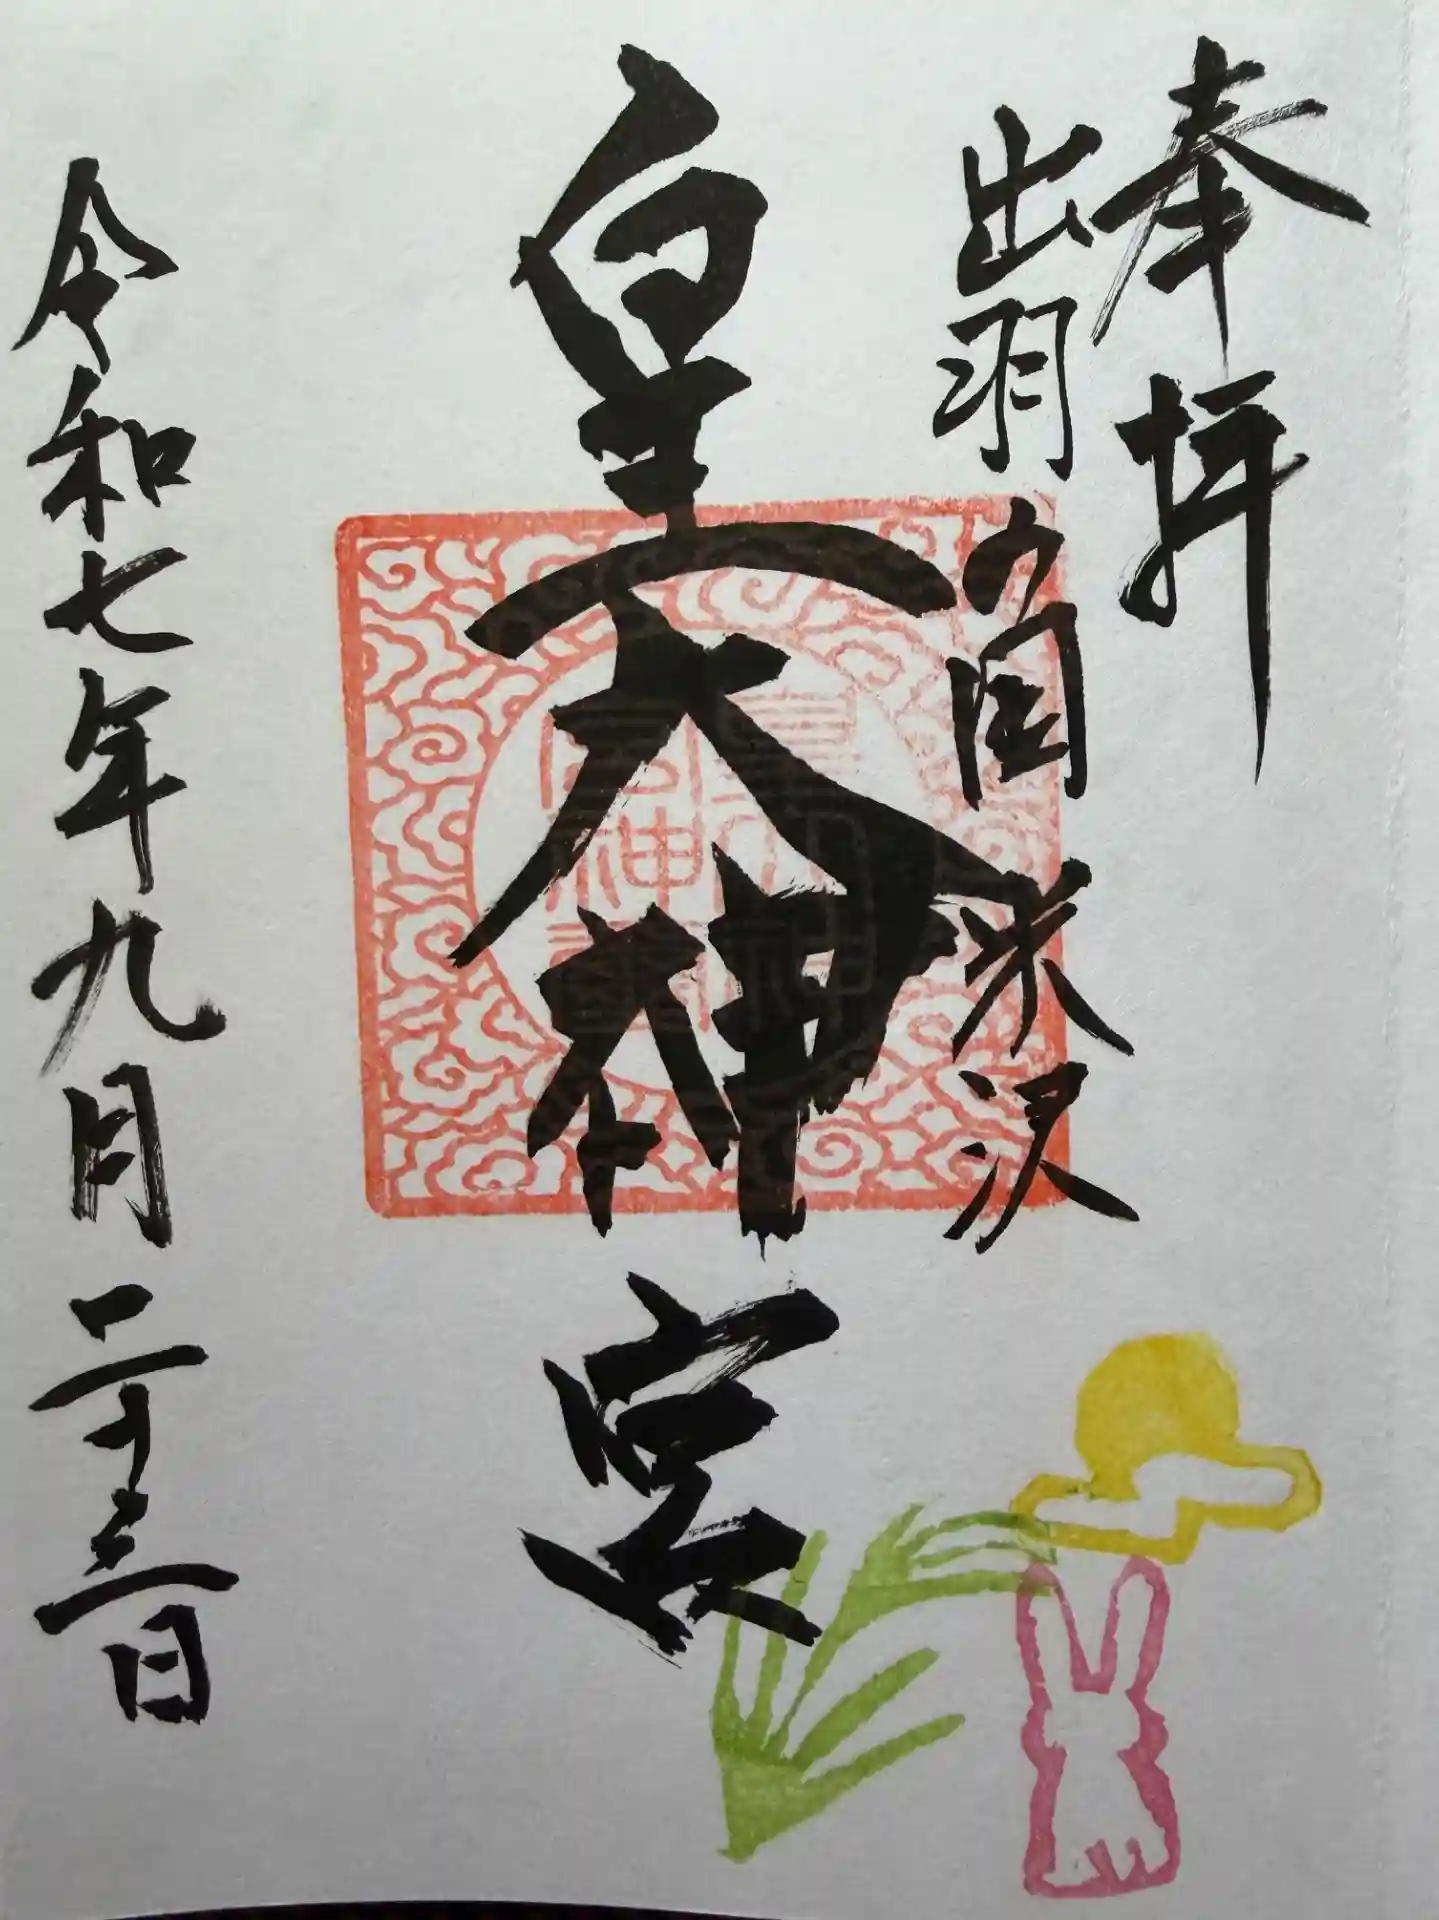 奉拝
出羽之国 米沢
皇大神宮
令和七年九月二十三日